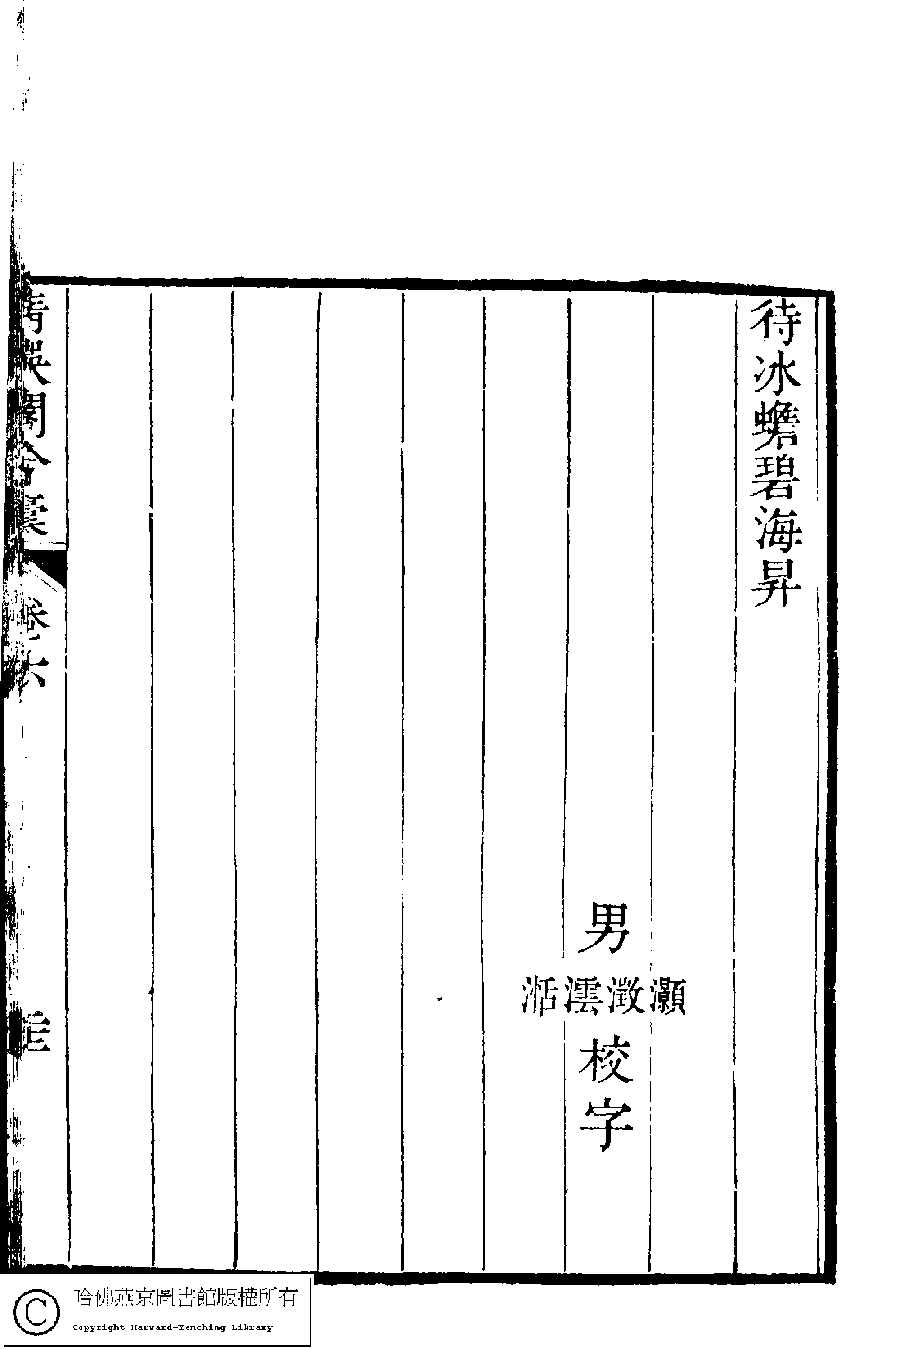 待冰蟾碧海昇
男
灝澂澐湉
校字
卷六
哈佛燕京圖書館版權所有
Copyright Harvard-Yenching Library